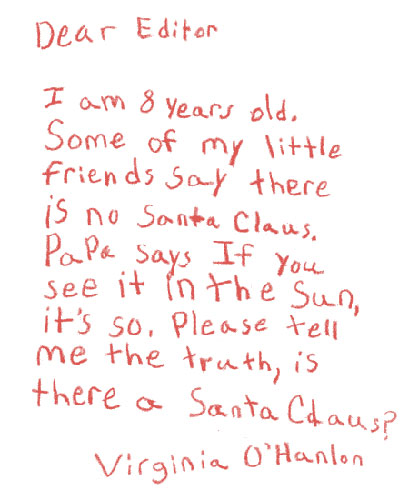 Dear Editor
I am 8 years old.
Some of my little
friends say there
is no Santa Claus.
PaPa says If you
see it in the Sun,
it's so. Please tell
me the truth, is
there a Santa Claus?
Virginia O'Hanlon